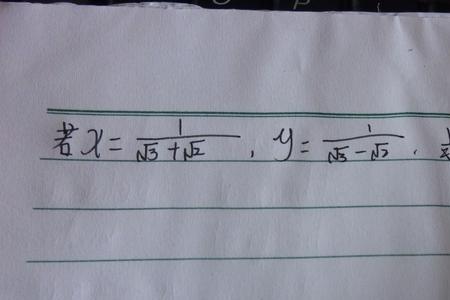 若 x = 1/(√3+√2), y = 1/(√3-√2),